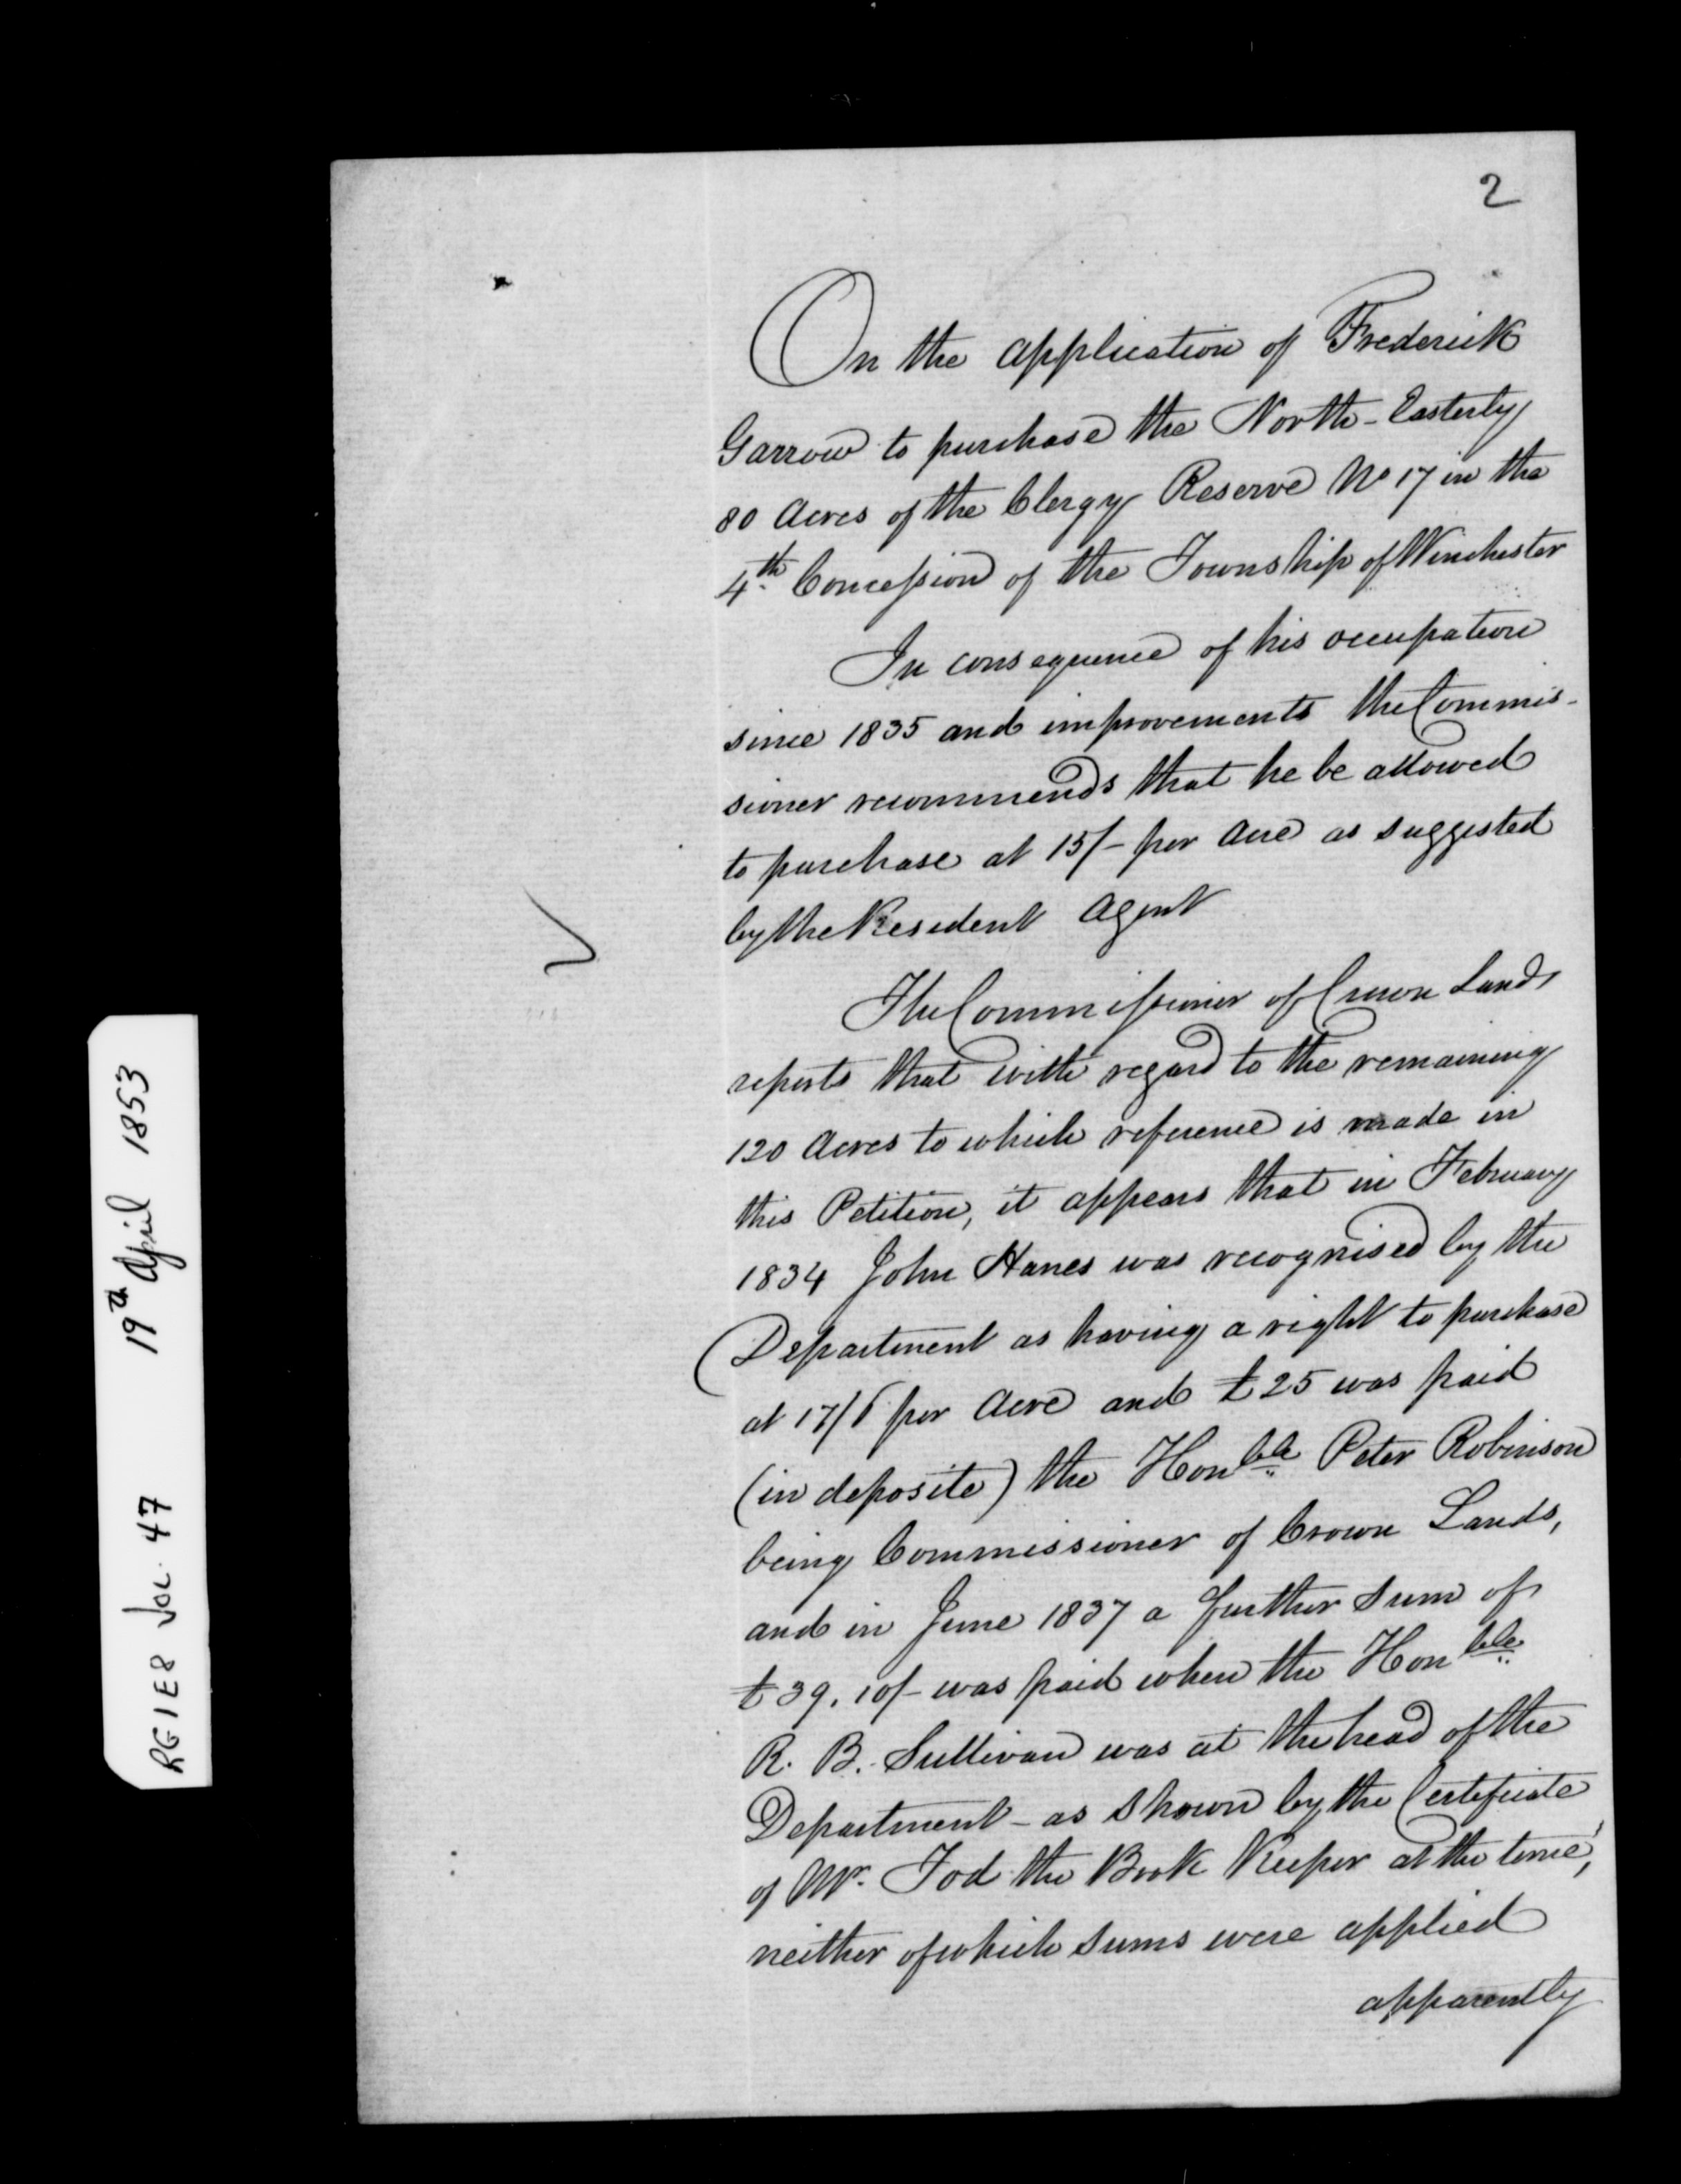 2
On the application of Frederick
Garrow to purchase the North-Easterly
80 Acres of the Clergy Reserve No 17 in the
4th Concession of the Township of Winchester
In consequence of his occupation
since 1835 and improvements the Commis-
sioner recommends that he be allowed
to purchase at 15/- per Acre as suggested
by the Resident Agent
The Commissioner of Crown Lands
reports that with regard to the remaining
120 Acres to which reference is made in
this Petition, it appears that in February
1834 John Hanes was recognised by the
Department as having a right to purchase
at 17/6 per Acre and £25 was paid
(in deposite) the Honble Peter Robinson
being Commissioner of Crown Lands,
and in June 1837 a further Sum of
£39.10/- was paid when the Honble
R. B. Sullivan was at the head of the
Department - as shown by the Certificate
of Mr. Tod the Book Keeper at the time,
neither of which sums were applied
apparently
RG1E8 Vol. 47 19th April 1853